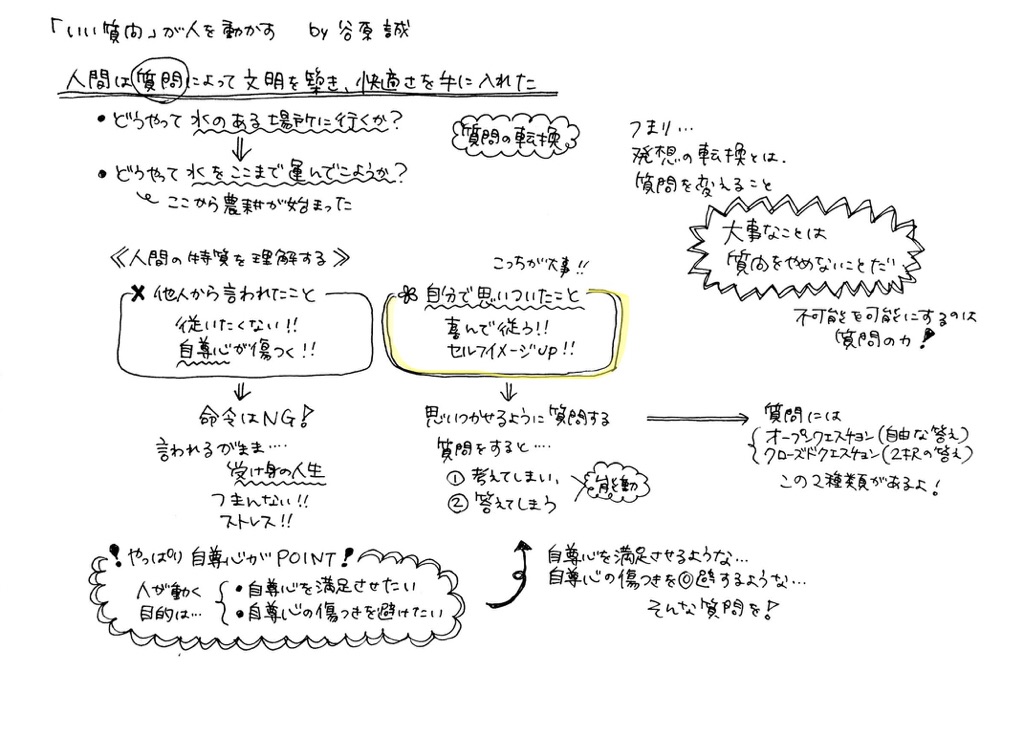 「いい質問」が人を動かす by 谷原誠
人間は質問によって文明を築き、快適さを手に入れた
・どうやって水のある場所に行くか?
・どうやって水をここまで運んでこようか?
ここから農耕が始まった
質問の転換
つまり…
発想の転換とは、
質問を変えること
大事なことは
質問をやめないことだ
不可能を可能にするのは
質問の力!
≪人間の特質を理解する≫
× 他人から言われたこと
従いたくない!!
自尊心が傷つく!!
命令はNG!
言われるがまま‥‥
受け身の人生
つまんない!!
ストレス!!
こっちが大事!!
自分で思いついたこと
喜んで従う!!
セルフイメージup!!
思いつかせるように質問する
質問をすると‥‥
① 考えてしまい、
② 答えてしまう
能動
質問には
オープンクエスチョン(自由な答え)
クローズドクエスチョン(2択の答え)
この2種類があるよ!
!やっぱり自尊心がPOINT!
人が動く
目的は…
・自尊心を満足させたい
・自尊心の傷つきを避けたい
自尊心を満足させるような…
自尊心の傷つきを回避するような…
そんな質問を!